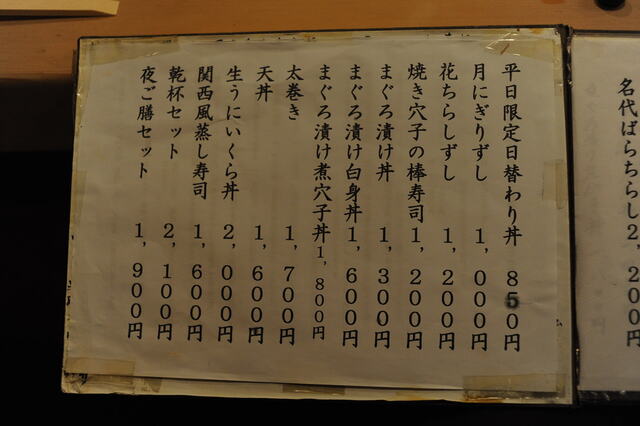 名代ばらちらし２，２００円
平日限定日替わり丼　８５０円
月にぎりずし　１，０００円
花ちらしずし　１，２００円
焼き穴子の棒寿司１，２００円
まぐろ漬け丼　１，３００円
まぐろ漬け白身丼１，６００円
まぐろ漬け煮穴子丼１，８００円
太巻き　１，７００円
天丼　１，６００円
生うにいくら丼　２，０００円
関西風蒸し寿司　１，６００円
乾杯セット　２，１００円
夜ご膳セット　１，９００円